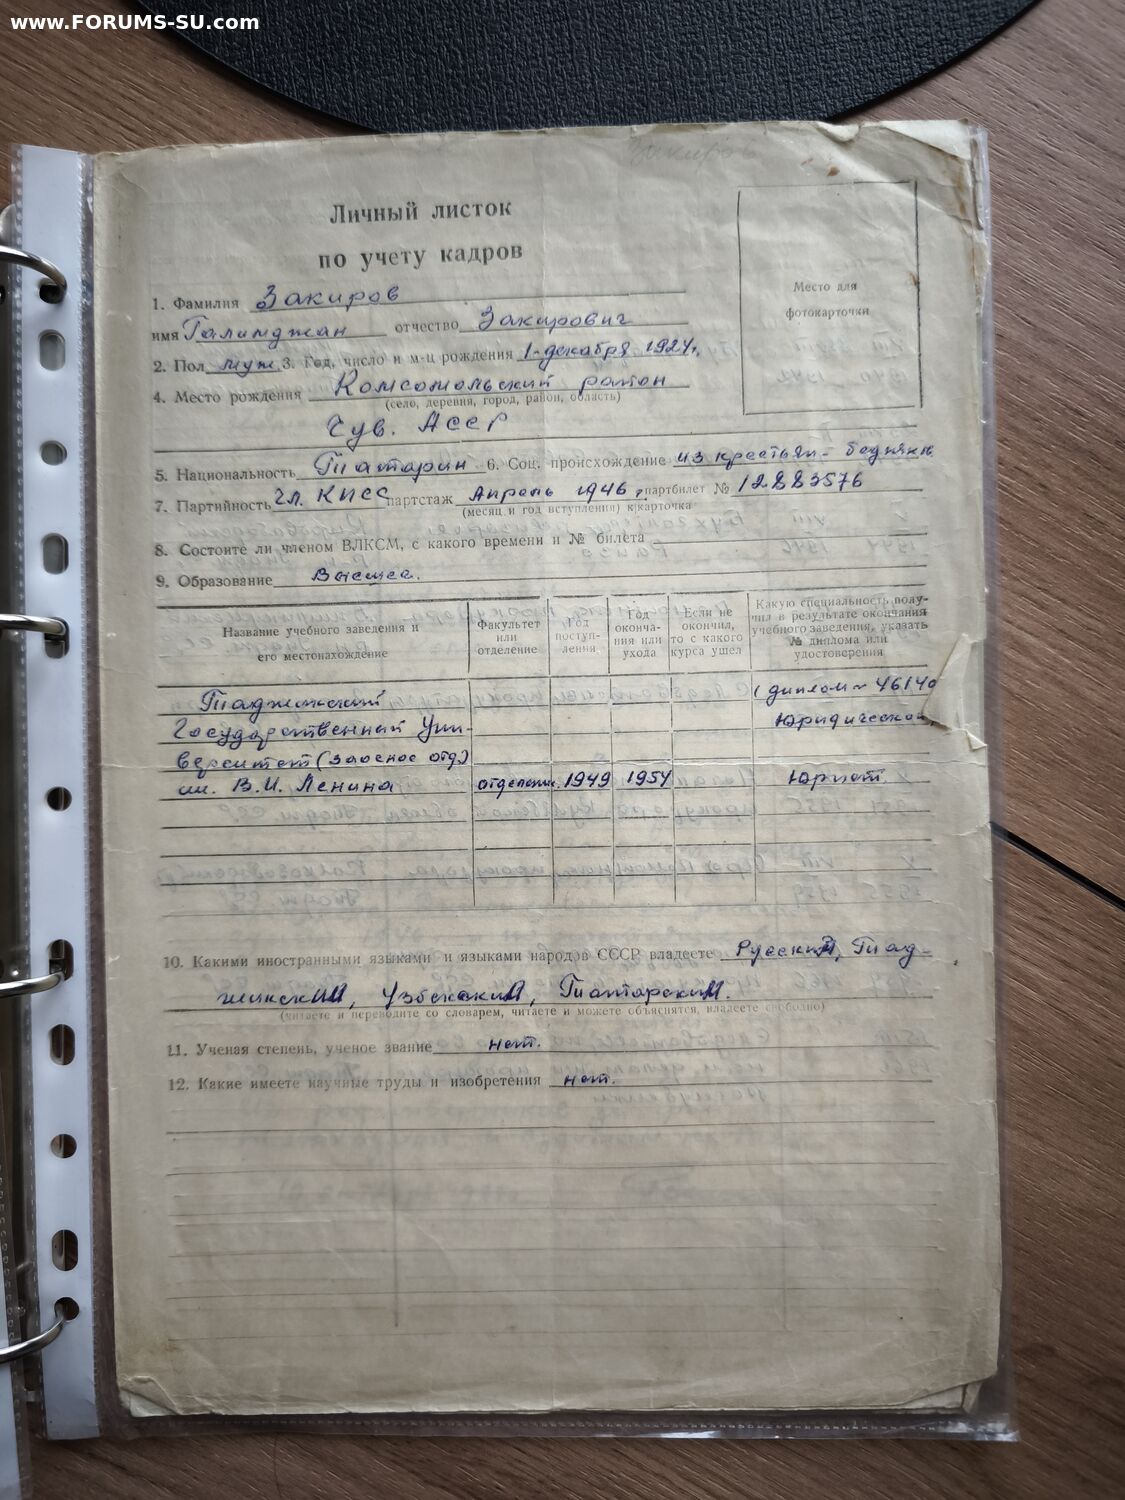 www.FORUMS-SU.com
Закиров
Личный листок
по учету кадров
Место для
фотокарточки
1. Фамилия Закиров
имя Галимджан отчество Закирович
2. Пол муж. 3. Год, число и м-ц рождения 1-декабря 1924г.
4. Место рождения Комсомольский район
(село, деревня, город, район, область)
Чув. АССР
5. Национальность Татарин 6. Соц. происхождение из крестьян-бедняков
7. Партийность Чл. КПСС партстаж Апрель 1946, партбилет № 12883576
(месяц и год вступления) к/карточка
8. Состоите ли членом ВЛКСМ, с какого времени и № билета
9. Образование Высшее.
Название учебного заведения и его местонахождение
Факультет или отделение
Год поступления
Год окончания или ухода
Если не окончил, то с какого курса ушел
Какую специальность получил в результате окончания учебного заведения, указать № диплома или удостоверения
Таджикский (диплом №
Государственный Уни- Юридической
верситет (заочное отд.)
им. В.И. Ленина отделение 1949 1954 Юрист
10. Какими иностранными языками и языками народов СССР владеете Русский, Тад-
жикский, Узбекский, Татарский.
(читаете и переводите со словарем, читаете и можете объяснятся, владеете свободно)
11. Ученая степень, ученое звание нет.
12. Какие имеете научные труды и изобретения нет.